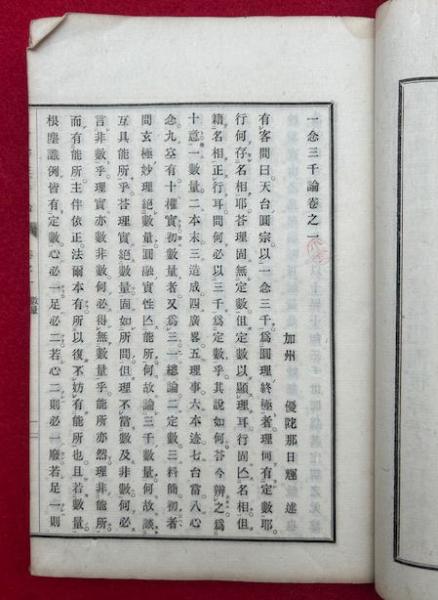 一念三千論卷之一
加州　優陀那日輝　述
有客問曰天台圓宗以一念三千爲圓理終極者理何有定數耶
行何存名相耶答理固無定數但定數以顯理耳行固亡名相但
籍名相正行耳問何必以三千爲定數乎其說如何答今辨之爲
十意一數量二本末三造成四廣畧五理事六本迹七台當八心
念九空有十權實初數量者又爲三一總論二定數三料簡初者
問玄極妙理絕數量圓融實性亡能所何故論三千數量何故談
互具能所乎答理實絕數量固如所問但理不當數及非數何必
言非數乎理實亦數非數何必得無數量乎能所亦然理非能所
而有能所主伴依正法爾本有所以復不妨有能所也且若數量
根塵識例皆有定數心必一足必二若心二則必一廢若足一則
數量